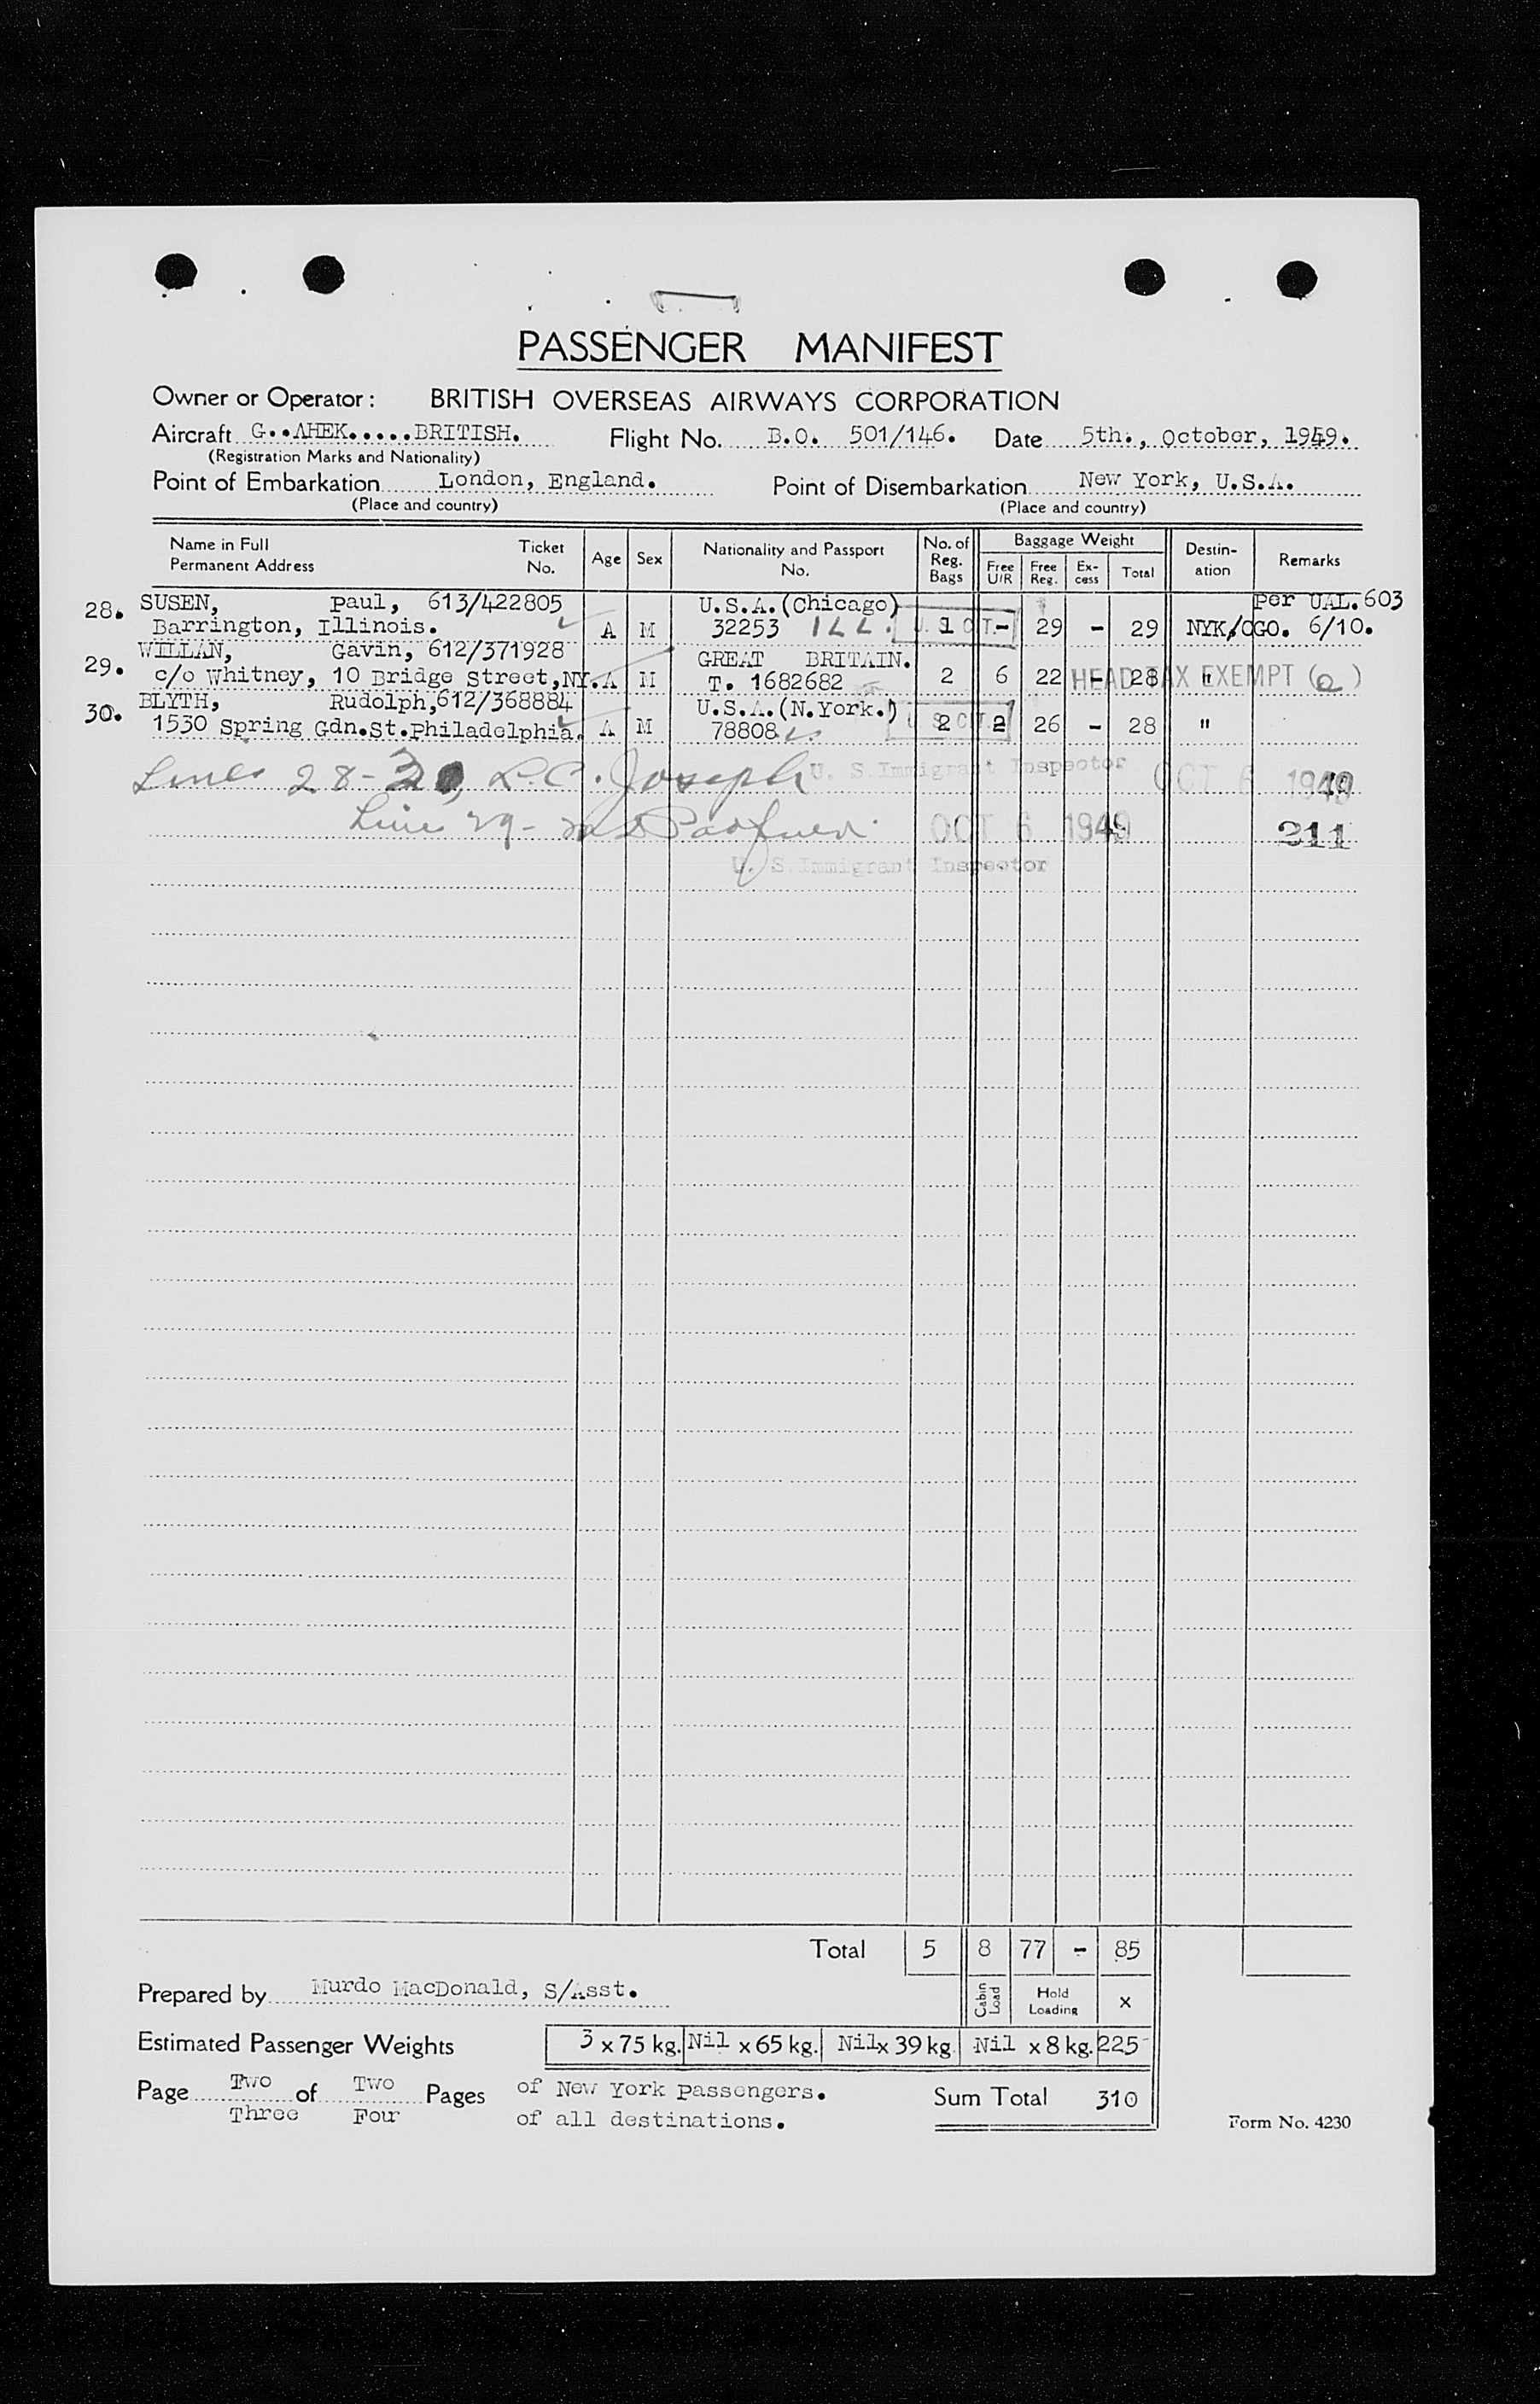 PASSENGER MANIFEST
Owner or Operator : BRITISH OVERSEAS AIRWAYS CORPORATION
Aircraft G..AHEK.....BRITISH. Flight No. B.O. 501/146. Date 5th., October, 1949.
(Registration Marks and Nationality)
Point of Embarkation London, England. Point of Disembarkation New York, U.S.A.
(Place and country) (Place and country)
Name in Full Permanent Address Ticket No. Age Sex Nationality and Passport No. No. of Reg. Bags Baggage Weight Free U/R Free Reg. Ex-cess Total Destin-ation Remarks
28. SUSEN, Paul, 613/422805 U.S.A.(Chicago) per UAL.603
Barrington, Illinois. A M 32253 ILL. U.S.C.T. 1 - 29 - 29 NYK/CGO. 6/10.
29. WILLAN, Gavin, 612/371928 GREAT BRITAIN.
c/o Whitney, 10 Bridge Street,NY. A M T. 1682682 2 6 22 - 28 " HEAD TAX EXEMPT (a)
30. BLYTH, Rudolph,612/368884 U.S.A.(N.York.)
1530 Spring Gdn.St.Philadelphia. A M 78808 U.S.C.T. 2 2 26 - 28 "
Lines 28-30, L.C. Joseph U. S. Immigrant Inspector OCT 6 1949
Line 29- OCT 6 1949 211
U. S. Immigrant Inspector
Total 5 8 77 - 85
Prepared by Murdo MacDonald, S/Asst. Cabin Load Hold Loading x
Estimated Passenger Weights 3 x 75 kg. Nil x 65 kg. Nil x 39 kg. Nil x 8 kg. 225
Page Two of Two Pages of New York passengers. Sum Total 310
Three Four of all destinations. Form No. 4230